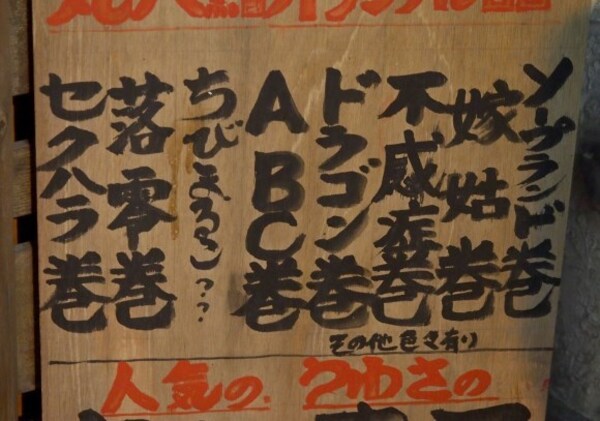 ソープランド巻
嫁姑巻
不感症巻
ドラゴン巻
ABC巻
ちびまるこ??
落零巻
セクハラ巻
その他色々有り
人気の、うわさの